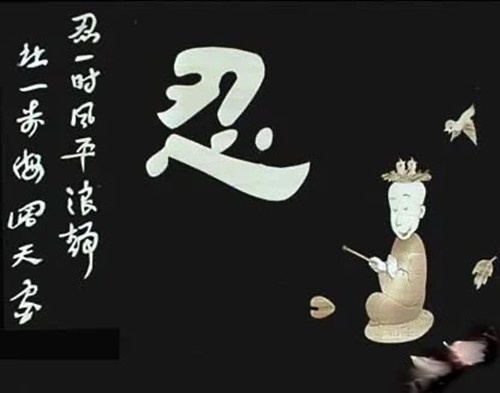 忍
忍一时风平浪静
让一步海阔天空